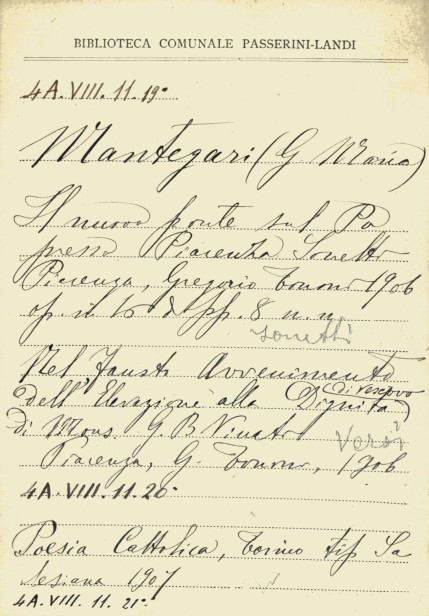 BIBLIOTECA COMUNALE PASSERINI-LANDI
4A.VIII.11.19°
Mantegari (G. Maria)
Il nuovo ponte sul Po
presso Piacenza Sonetto
Piacenza, Gregorio Tononi 1906
op. in 16 di pp. 8 n. n.
sonetti
Nel Fausto Avvenimento
dell'Elevazione alla Dignità di vescovo
di Mons. G. B. Vinati
versi
Piacenza, G. Tononi, 1906
4A.VIII.11.20
Poesia Cattolica, Torino tip Sa
lesiana 1907
4A.VIII.11.21°